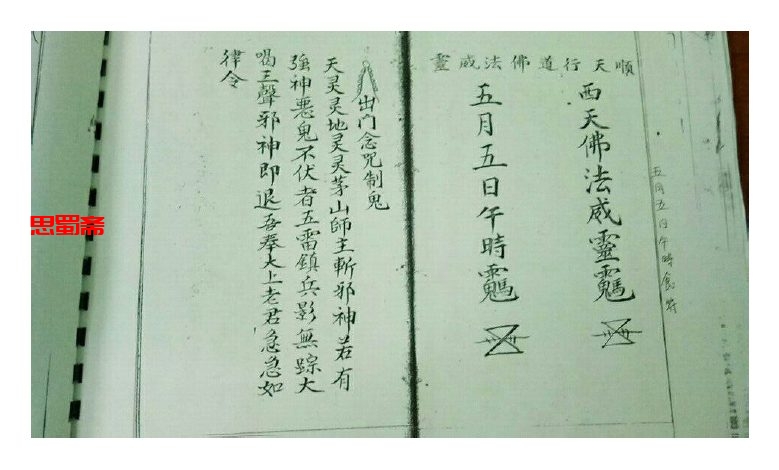 順天行道佛法威靈
五月五日午時
西天佛法威靈
五月五日午時
出门念咒制鬼
天灵灵地灵灵茅山師主斬邪神若有
強神悪鬼不伏者五雷鎮兵影無踪大
喝三聲邪神即退吾奉太上老君急急如
律令
思蜀斋